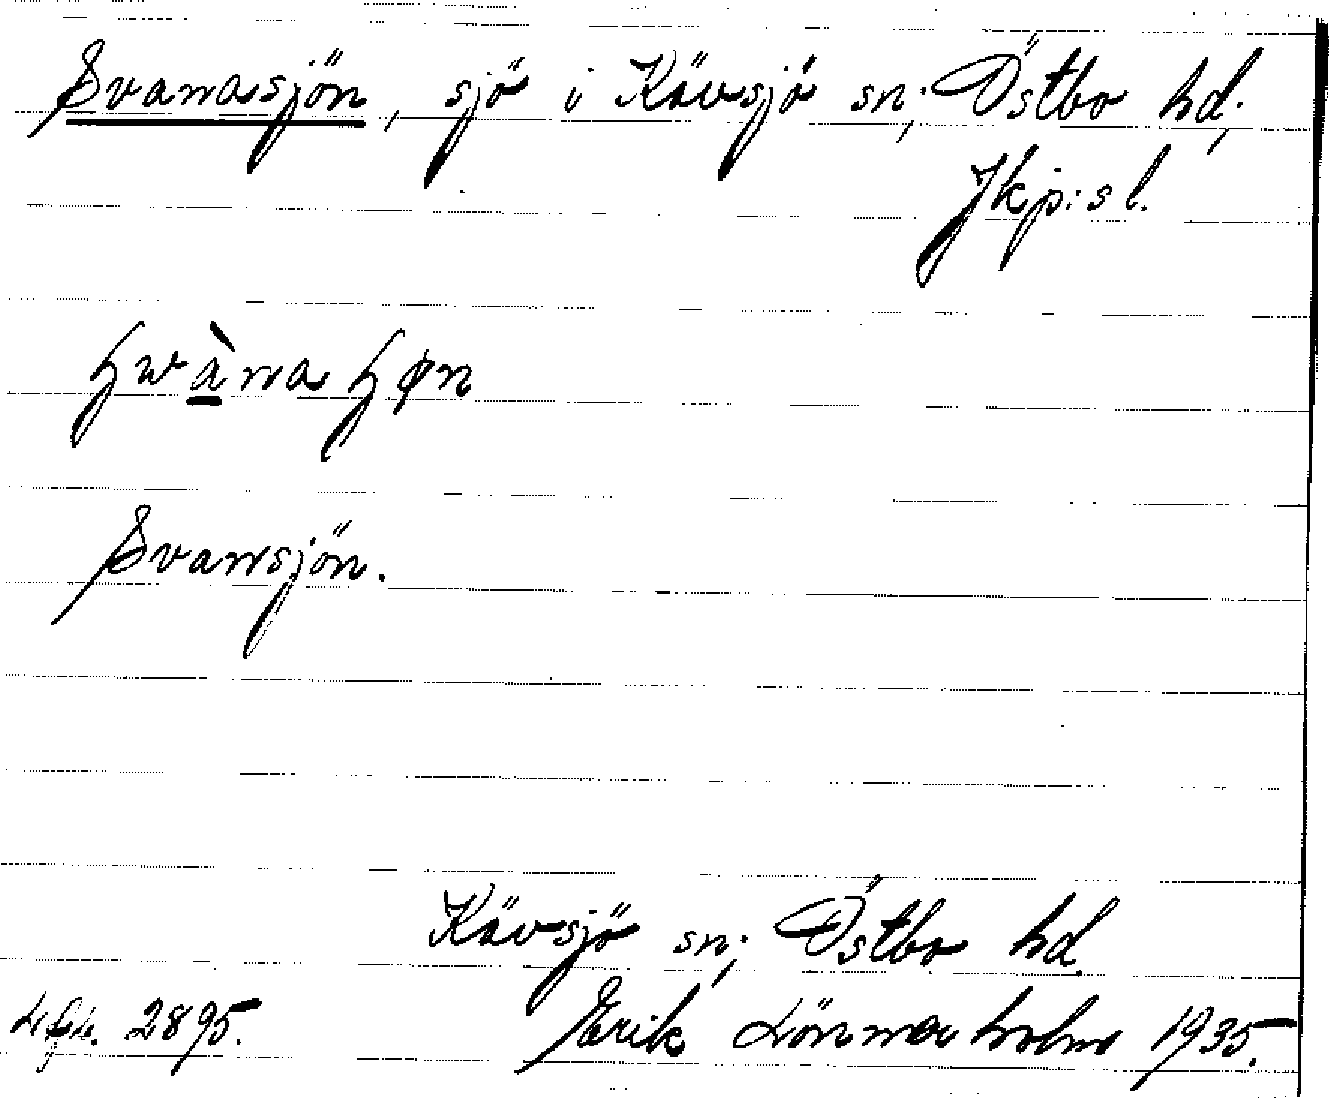 Svanasjön, sjö i Kävsjö sn, Östbo hd,
Jkp:s l.
Svansjön.
Kävsjö sn, Östbo hd
2895. Erik Lönnerholm 1935.